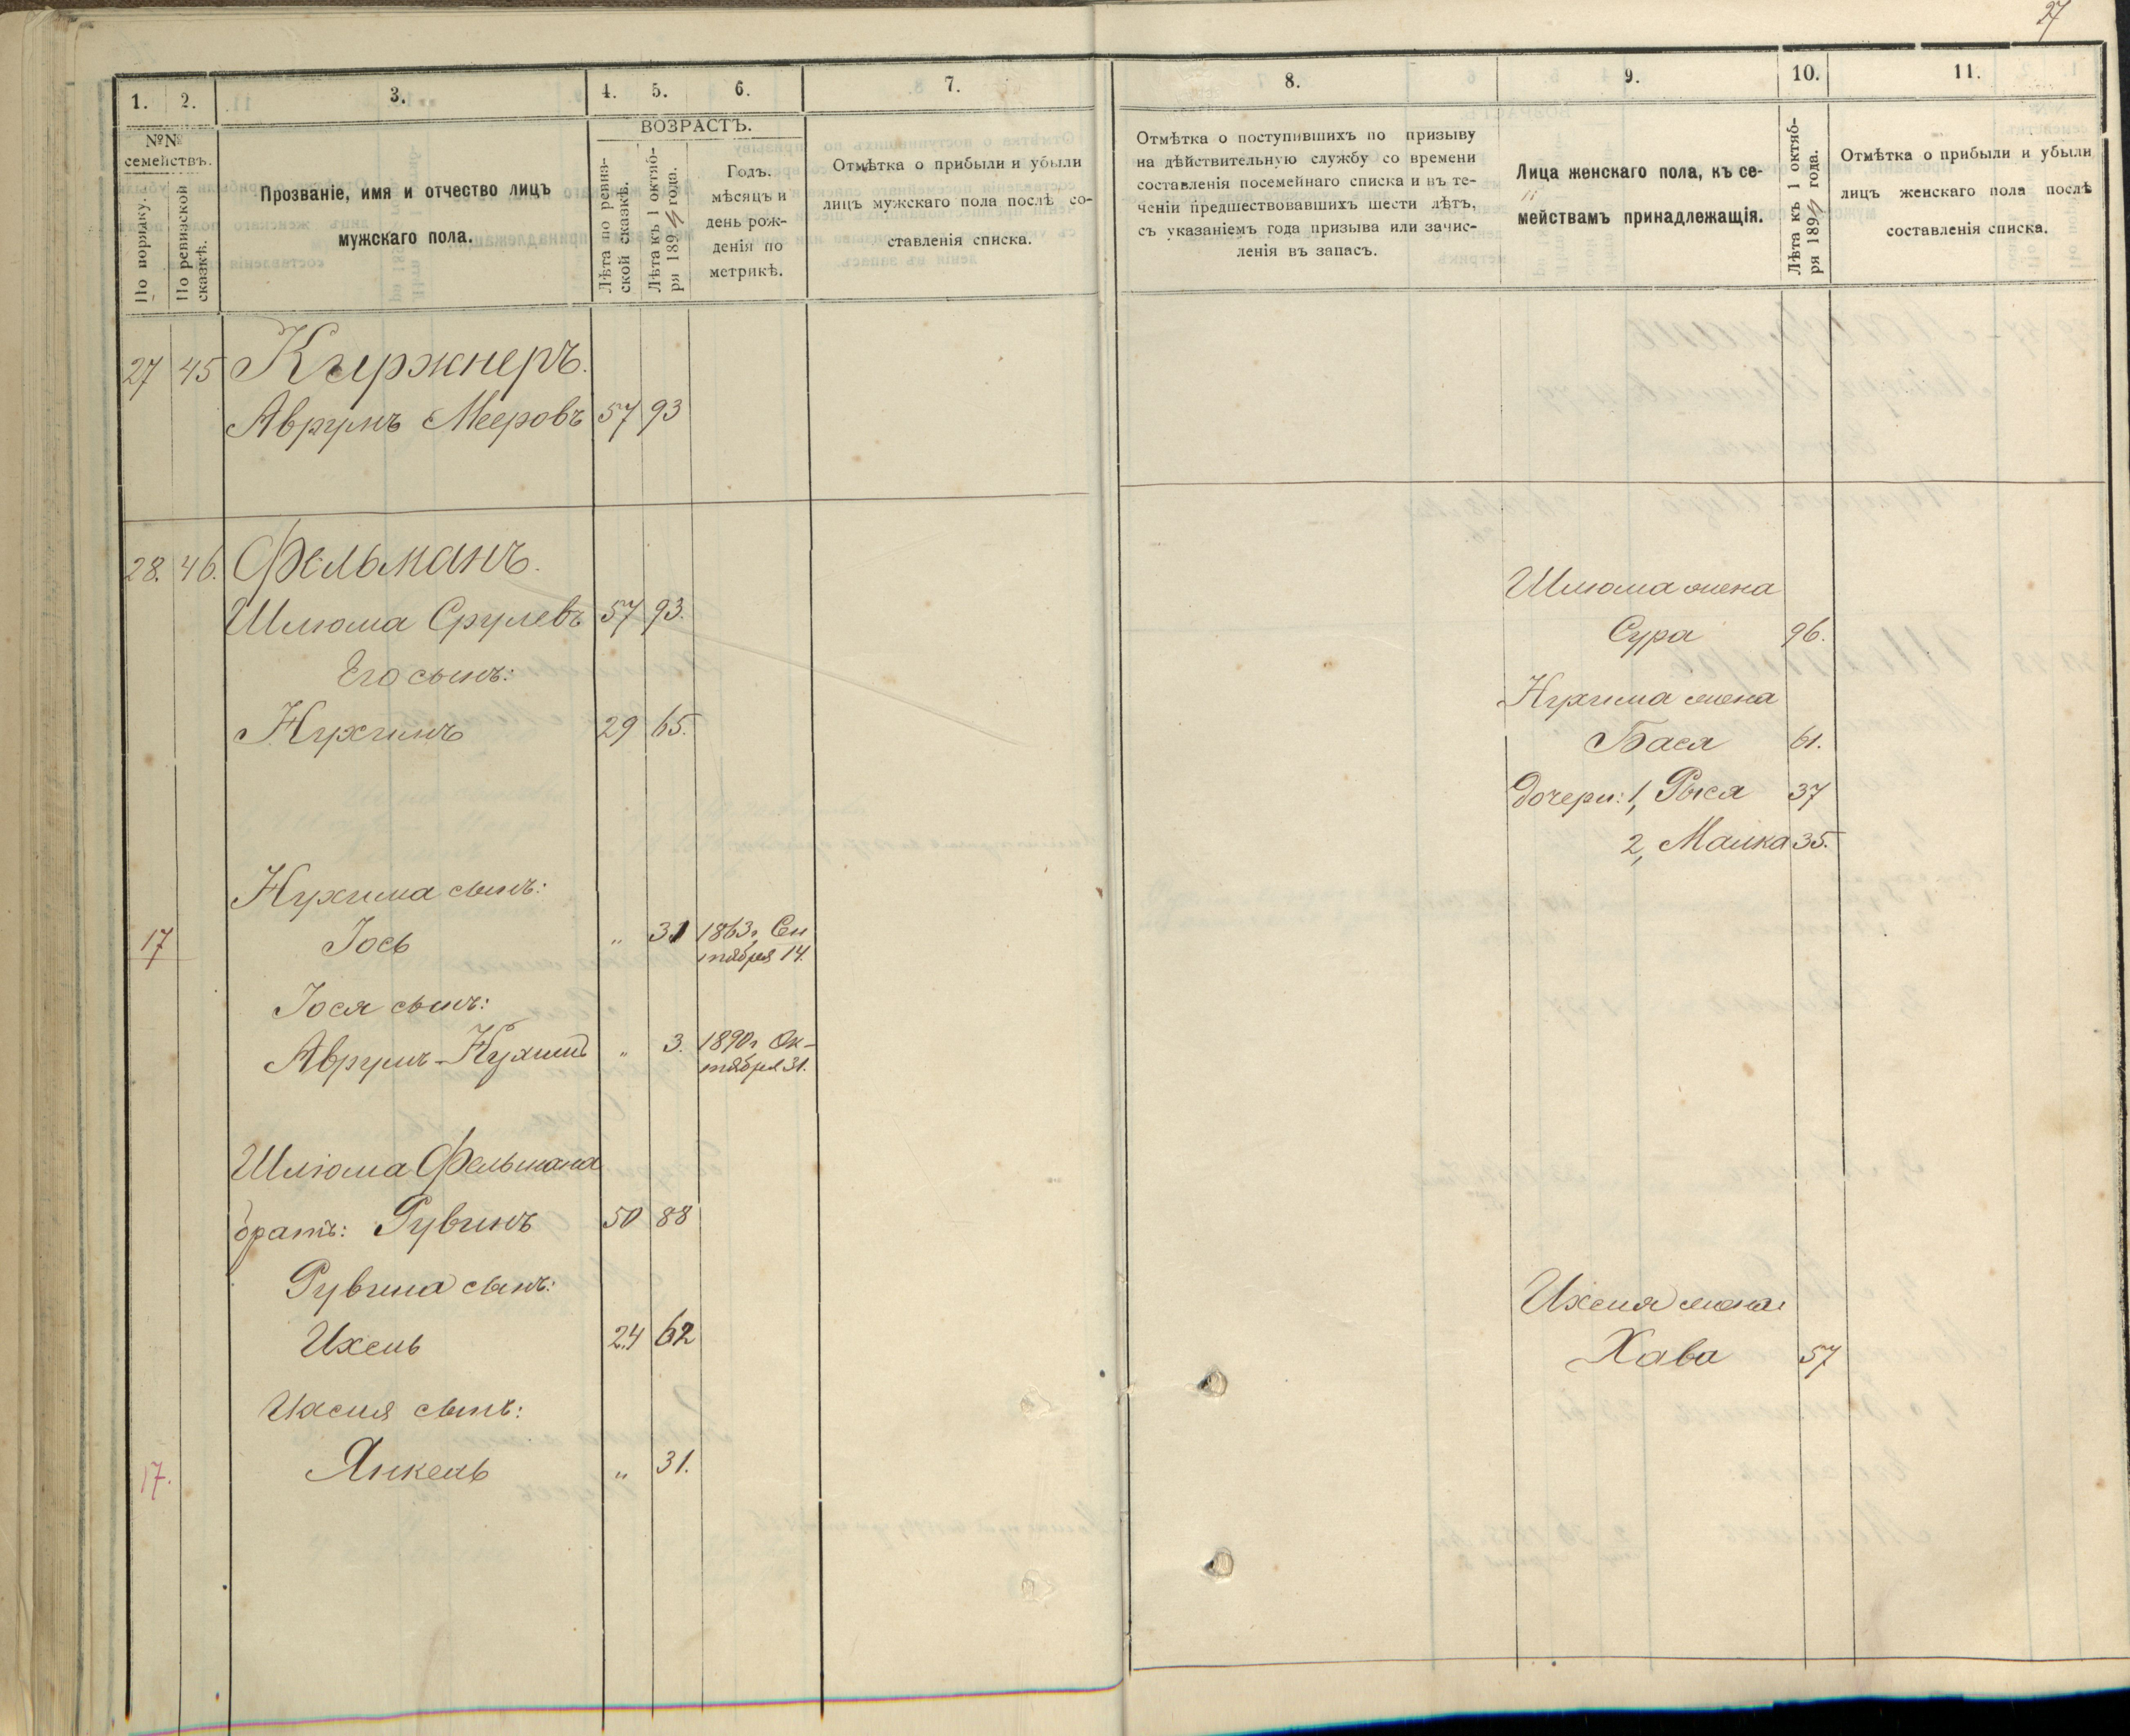 27
1. 2. 3. 4. 5. 6. 7.
№№ семействъ.
По порядку.
По ревизской сказкѣ.
Прозваніе, имя и отчество лицъ
мужскаго пола.
ВОЗРАСТЪ.
Лѣта по ревиз-
ской сказкѣ.
Лѣта къ 1 октяб-
ря 189 года.
Годъ.
мѣсяцъ и
день рож-
денія по
метрикѣ.
Отмѣтка о прибыли и убыли
лицъ мужскаго пола послѣ со-
ставленія списка.
27 45 Кыржнеръ.
Аврумъ Мееровъ 57 93
28. 46. Фельманъ.
Шлюма Срулевъ 57 93.
Его сынъ:
Нухимъ 29 65.
Нухима сынъ:
17 Іось „ 31 1863 г. Сен
тября 14.
Іося сынъ:
Аврумъ-Нухимъ „ 3. 1890 г Ок-
тября 31.
Шлюма Фельмана
братъ: Рувинъ 50 88
Рувина сынъ:
Ихель 24 62
Ихеля сынъ:
17. Янкель „ 31.
8. 9. 10. 11.
Отмѣтка о поступившихъ по призыву
на дѣйствительную службу со времени
составленія посемейнаго списка и въ те-
ченіи предшествовавшихъ шести лѣтъ,
съ указаніемъ года призыва или зачис-
ленія въ запасъ.
Лица женскаго пола, къ се-
мействамъ принадлежащія.
Лѣта къ 1 октяб-
ря 189 года.
Отмѣтка о прибыли и убыли
лицъ женскаго пола послѣ
составленія списка.
Шлюма жена
Сура 96.
Нухима жена
Бася 61.
дочери: 1, Рыся 37
2, Малка 35.
Ихеля жена
Хава 57